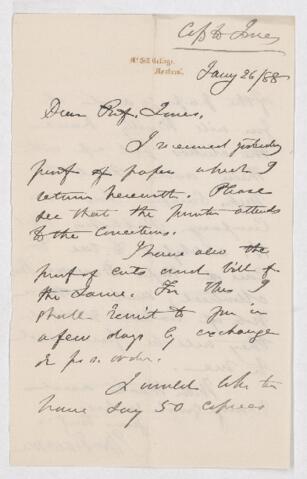 McGill College,
Montreal.
Jany 26/88
Dear Prof. Innes,
I received yesterday
proof of paper which I
return herewith. Please
see that the printer attends
to the corrections.
I have also the
proof of cuts and bill for
the same. For this I
shall remit to you in
a few days by exchange
or p.o. order.
I would like to
have say 50 copies